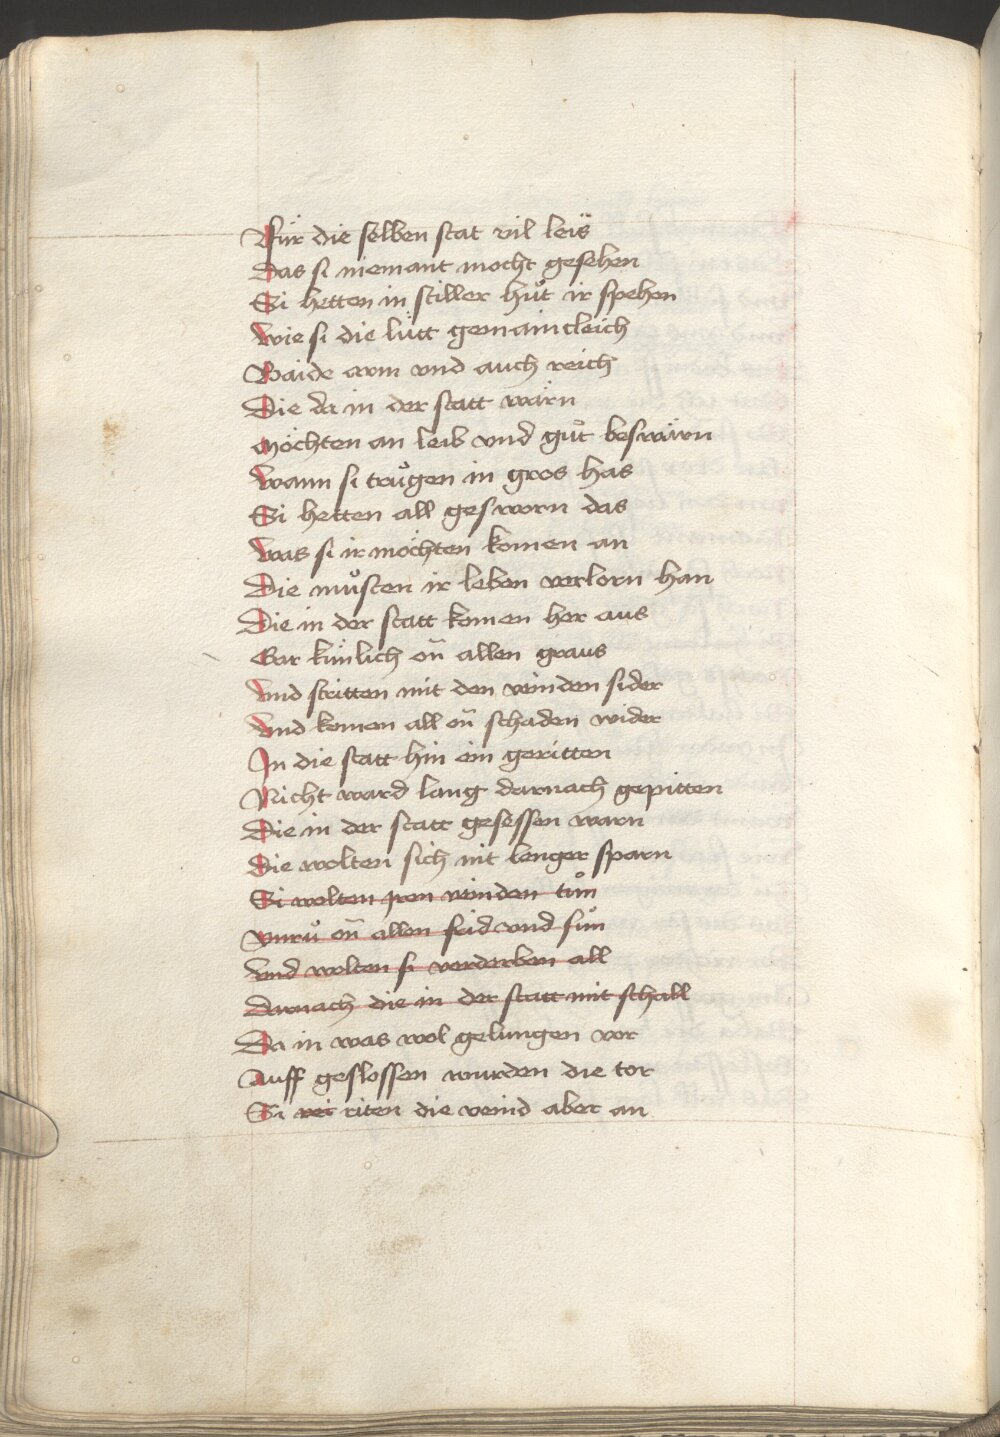 Für die selben stat vil leis
Das si niemant mocht gesehen
Si hetten in stiller huͦt ir spehen
Wie si die lütt gemaincleich
Baide arm vnd auch reich
Die da in der statt wärn
Möchten an leib vnd guͦt beswärn
Wann si truͦgen in gros has
Si hetten all gesworn das
Was si ir möchten komen an
Die muͦsten ir leben verlorn han
Die in der statt komen her aus
Gar künlich on̄ allen graus
Vnd stritten mit den veinden sider
Vnd komen all on̄ schaden wider
In die statt hin ein geritten
Nicht ward lang darnach gepitten
Die in der statt gesessen warn
Die wolten sich nit lenger sparn
Si wolten iren veinden tuͦn
Vnruͦ on̄ allen frid vnd suͦn
Vnd wolten si verderben all
Darnach die in der statt mit schall
Da in was wol gelungen vor
Auff geslossen wurden die tor
Si rei riten die veind aber an